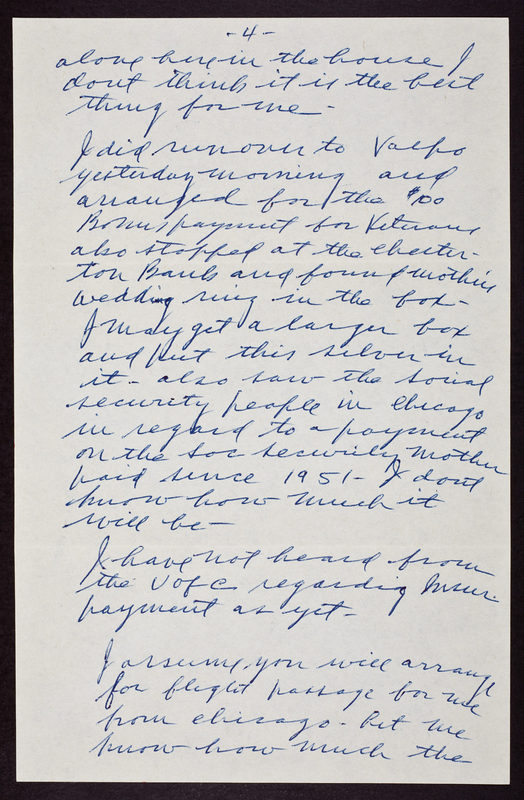 -4-
alone here in the house I
dont think it is the best
thing for me -
I did run over to Valpo
yesterday morning and
arranged for the $00
Bonus payment for Veterans
also stopped at the Chester-
ton Bank and found mothers
wedding ring in the box -
I may get a larger box
and put this silver in
it - also saw the social
security people in Chicago
in regard to a payment
on the Soc security Mother
paid since 1951 - I dont
know how much it
will be -
I have not heard from
the U of C regarding Insur.
payment as yet -
I assume, you will arrange
for flight passage for me
from Chicago - let me
know how much the